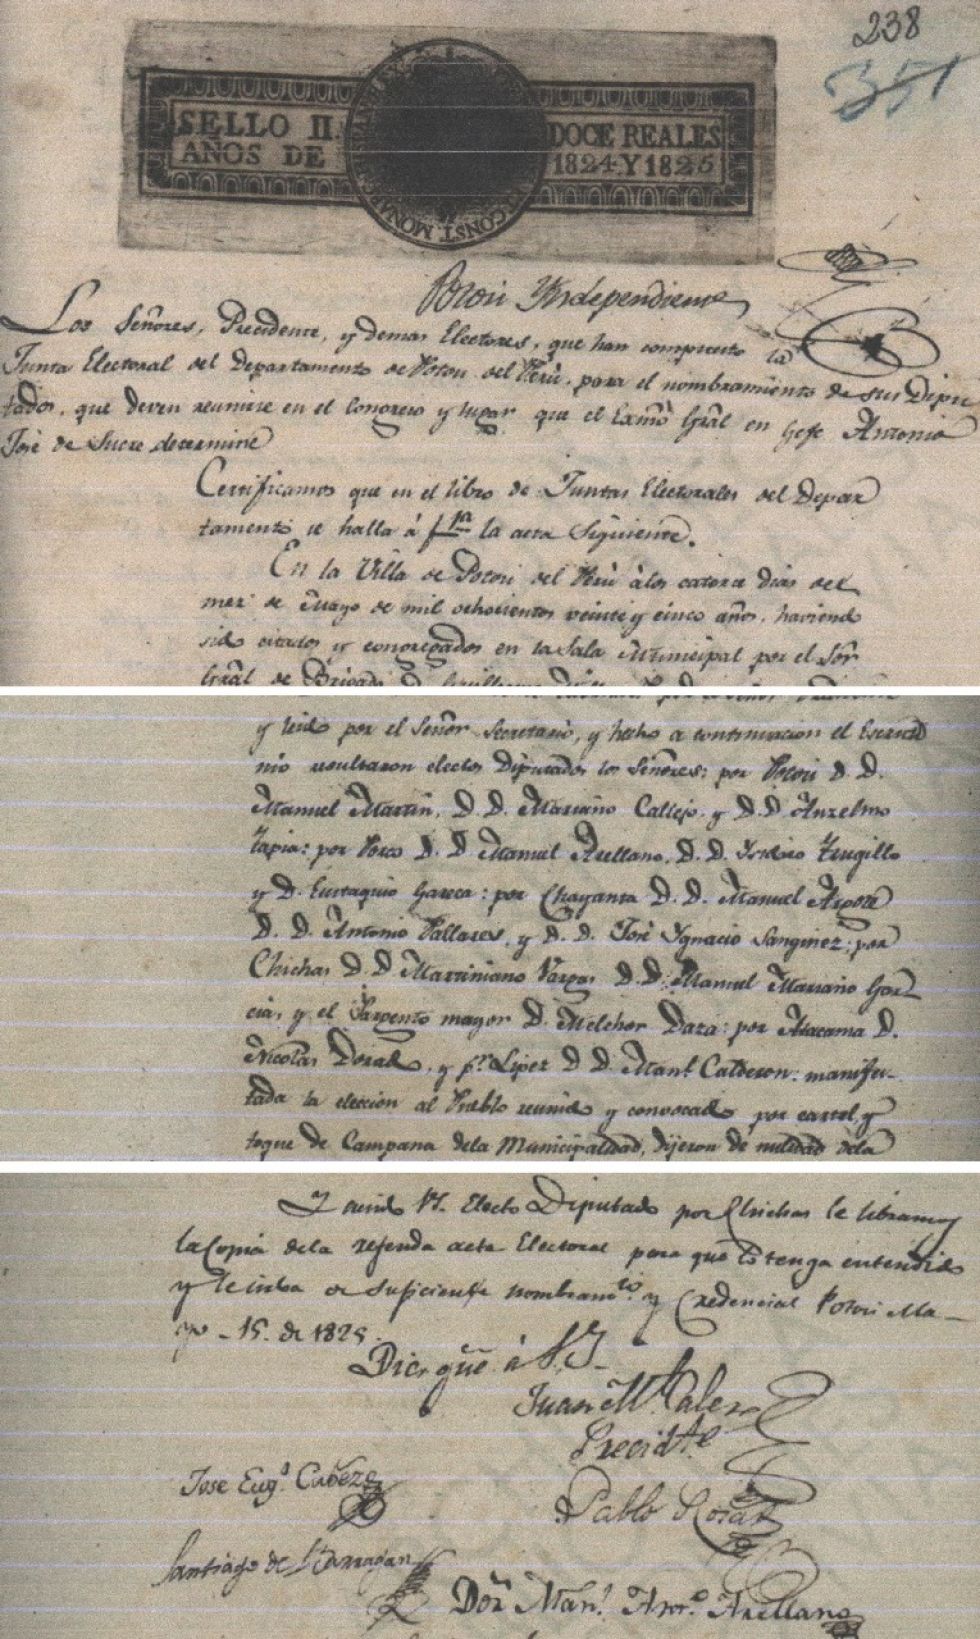 238
351
SELLO II.
AÑOS DE
DOCE REALES
1824 Y 1825
CONST. MONAR
Potosi Yndependiente
Los Señores, Precidente, y demas Electores, que han compuesto la
Junta Electoral del Departamento de Potosi del Perú, para el nombramiento de sus Dipu
tados, que deven reunirse en el Congreso y lugar que el Exmõ Grãl en Gefe Antonio
José de Sucre determine
Certificamos que en el libro de Juntas Electorales del Depar
tamento se halla á f 1ª la acta Siguiente.
En la Villa de Potosi del Perú á los catorce dias del
mes de Mayo de mil ochocientos veinte y cinco años, haviend
sido citados y congregados en la Sala Municipal por el Sõr
Grãl de Brigada D.
y leido por el Señor Secretario, y hecho a continuacion el Escruti
nio resultaron electos Diputados los Señores: por Potosi D. D.
Manuel Martin, D. D. Mariano Callejo, y D. D. Anzelmo
Tapia: por Porco D. D. Manuel Arellano, D. D. Ysidoro Trugillo
y D. Eustaquio Gareca: por Chayanta D. D. Manuel Argote
D. D. Antonio Pallares, y D. D. José Ygnacio Sanginez: por
Chichas D. D. Martiniano Vargas D. D. Manuel Mariano Gar
cia, y el Sargento mayor D. Melchor Daza: por Atacama D.
Nicolas Dorado, y pr. Lipez D. D. Manl. Calderon: manifes-
tada la eleccion al Pueblo reunido y convocado por cartel y
toque de Campana dela Municipalidad, dijeron de nulidad dela
Y siendo V. Electo Diputado por Chichas le libramos
la Copia dela referida acta Electoral para que lo tenga entendido
y le sirba de suficiente nombramto. y Credencial Potosi Ma-
yo - 15. de 1825.
Dios gue. á V.
Juan M. Calero
Precidte
Jose Eugo. Cabeza
Pablo Rosas
Santiago de Barragan
Dor. Manl. Anto. Arellano